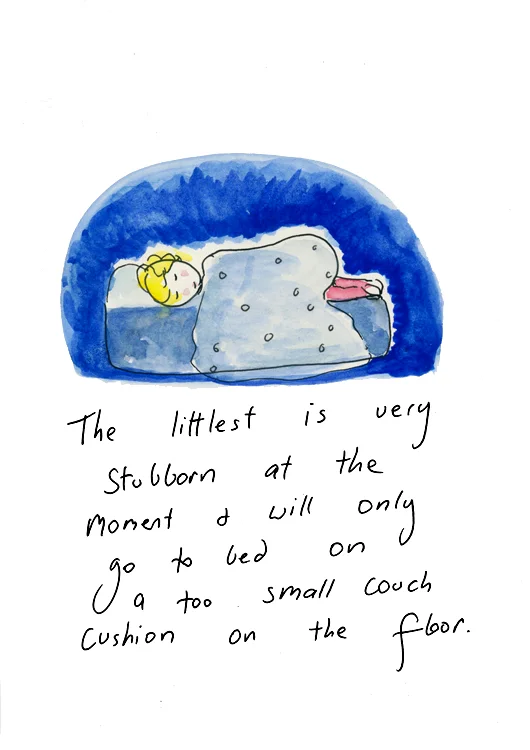 The littlest is very
stubborn at the
moment & will only
go to bed on
a too small couch
cushion on the floor.